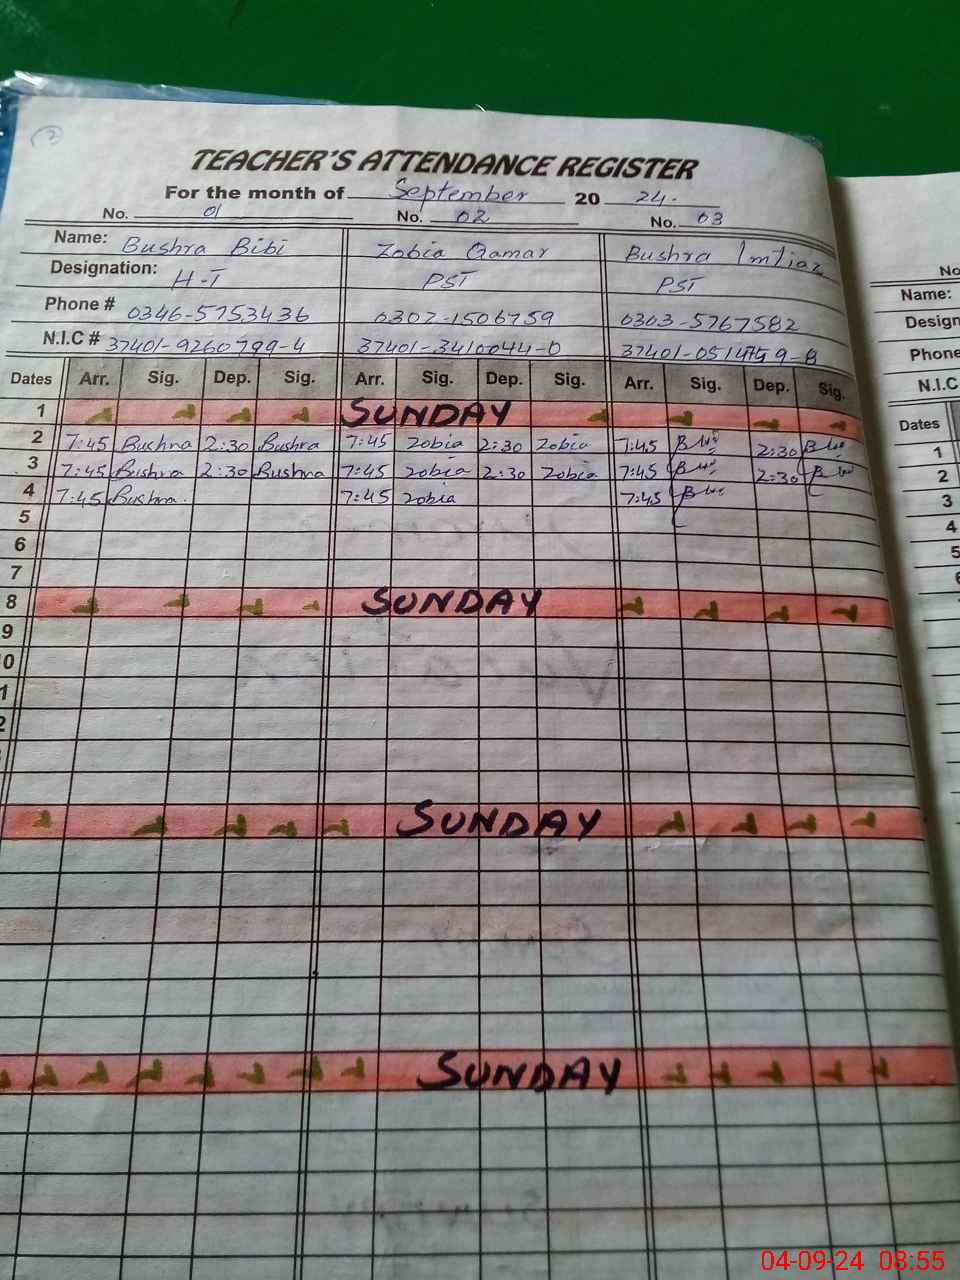 TEACHER'S ATTENDANCE REGISTER
For the month of September 20 24.
No. 01 No. 02 No. 03
Name: Bushra Bibi Zobia Qamar Bushra Imtiaz
Designation: H-T PST PST
Phone # 0346-5753436 0302-1506759 0303-5767582
N.I.C # 37401-9260799-4 37401-3410044-0
Dates Arr. Sig. Dep. Sig. Arr. Sig. Dep. Sig. Arr. Sig. Dep. Sig.
1 SUNDAY
2 7:45 Bushra 2:30 Bushra 7:45 Zobia 2:30 Zobia 7:45 2:30
3 7:45 Bushra 2:30 Bushra 7:45 Zobia 2:30 Zobia 7:45 2:30
4 7:45 Bushra. 7:45 Zobia 7:45
5
6
7
8 SUNDAY
9
SUNDAY
SUNDAY
No
Name:
Design
Phone
N.I.C
Dates
1
2
3
4
5
04-09-24 08:55